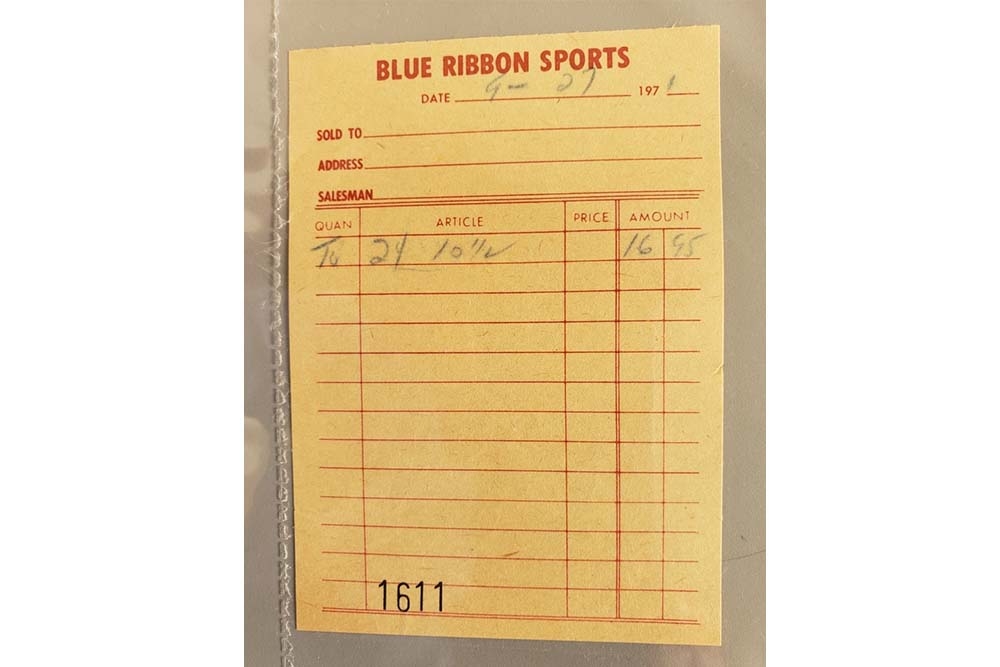 BLUE RIBBON SPORTS
DATE 9-27 1971
SOLD TO
ADDRESS
SALESMAN
QUAN ARTICLE PRICE AMOUNT
24 10 1/2 16 95
1611